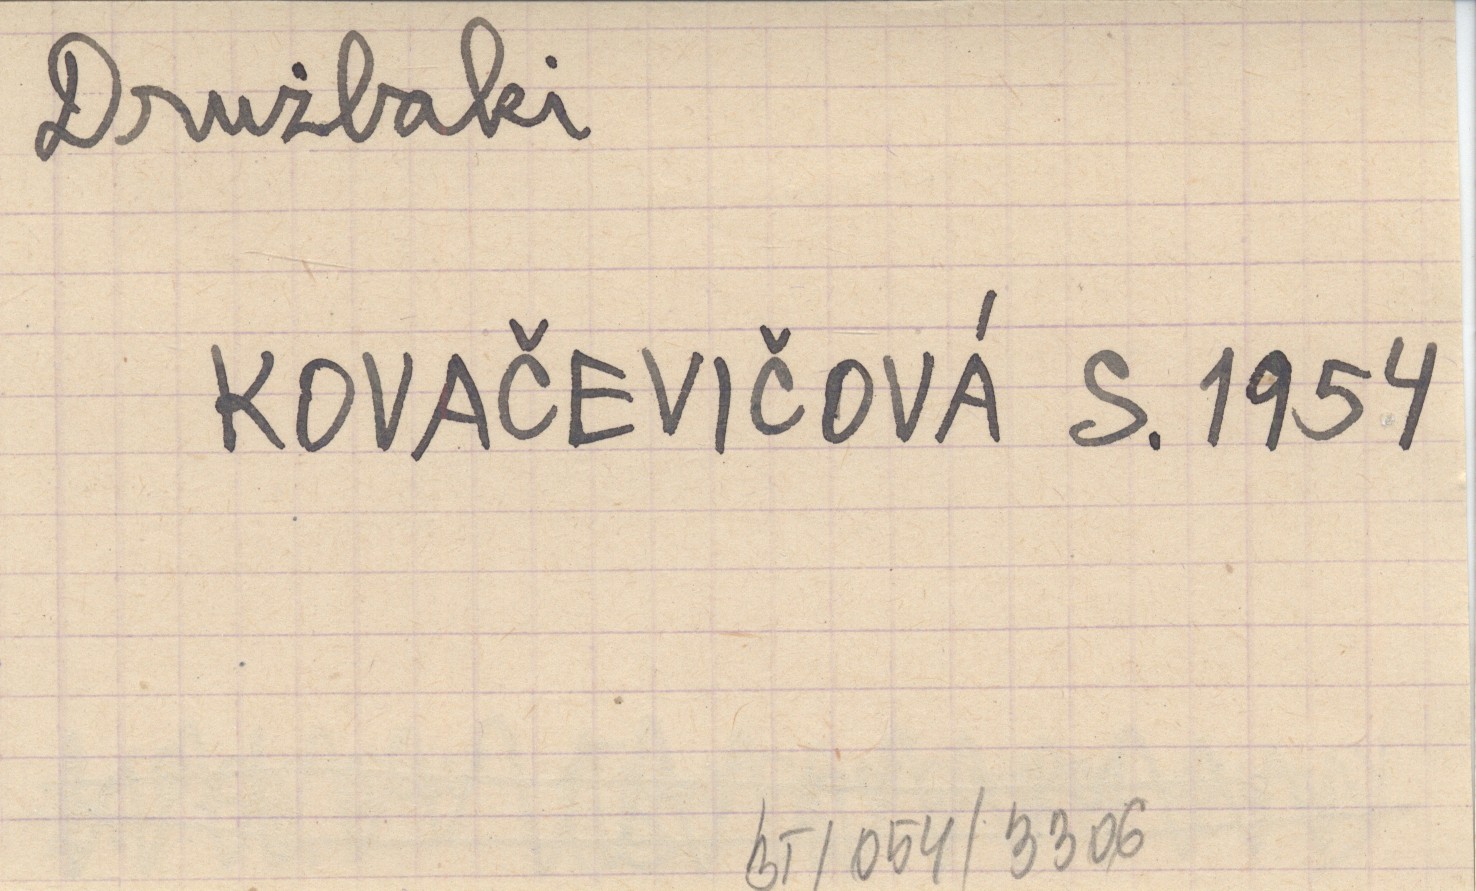 Družbaki
KOVAČEVIČOVÁ S. 1954
BT/054/3306